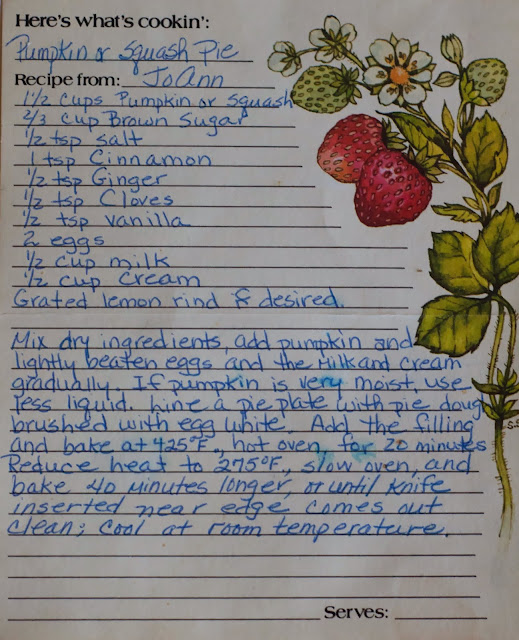 Here's what's cookin':
Pumpkin or Squash Pie
Recipe from: JoAnn
1 1/2 cups Pumpkin or Squash
2/3 cup Brown Sugar
1/2 tsp salt
1 tsp Cinnamon
1/2 tsp Ginger
1/2 tsp Cloves
1/2 tsp vanilla
2 eggs
1/2 cup milk
1/2 cup Cream
Grated lemon rind if desired.
Mix dry ingredients, add pumpkin and
lightly beaten eggs and the Milk and cream
gradually. If pumpkin is very moist, use
less liquid. Line a pie plate with pie doug
brushed with egg white. Add the filling
and bake at 425°F., hot oven, for 20 minutes
Reduce heat to 275°F., slow oven, and
bake 40 Minutes longer, or until Knife
inserted near edge comes out
clean; cool at room temperature.
Serves: